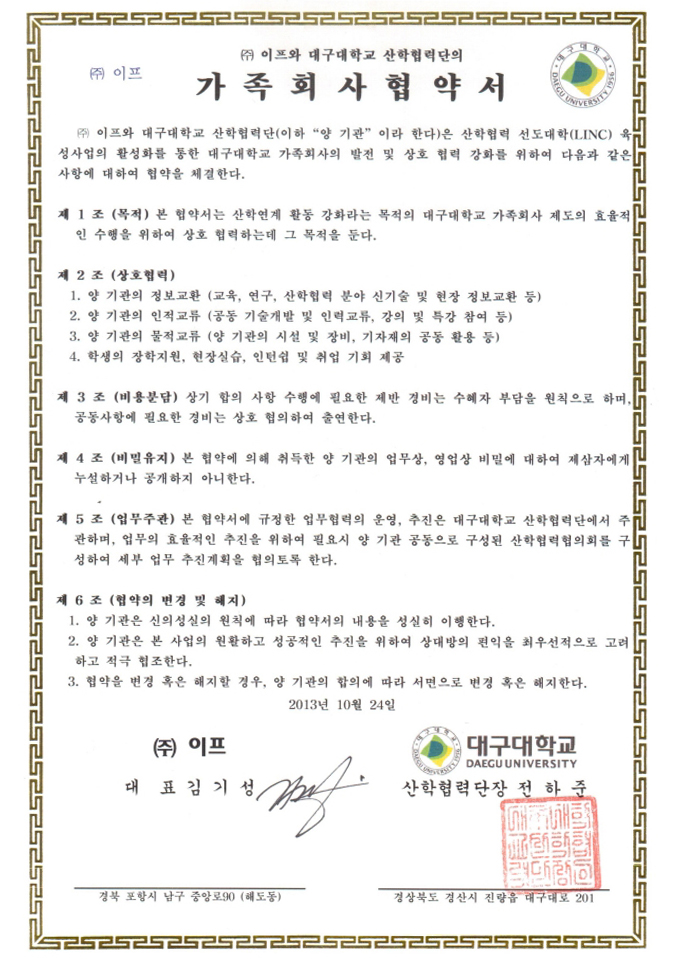 ㈜ 이프
㈜ 이프와 대구대학교 산학협력단의
가족회사협약서
대구대학교
DAEGU UNIVERSITY 1956
㈜ 이프와 대구대학교 산학협력단(이하 “양 기관”이라 한다)은 산학협력 선도대학(LINC) 육
성사업의 활성화를 통한 대구대학교 가족회사의 발전 및 상호 협력 강화를 위하여 다음과 같은
사항에 대하여 협약을 체결한다.
제 1 조 (목적) 본 협약서는 산학연계 활동 강화라는 목적의 대구대학교 가족회사 제도의 효율적
인 수행을 위하여 상호 협력하는데 그 목적을 둔다.
제 2 조 (상호협력)
1. 양 기관의 정보교환 (교육, 연구, 산학협력 분야 신기술 및 현장 정보교환 등)
2. 양 기관의 인적교류 (공동 기술개발 및 인력교류, 강의 및 특강 참여 등)
3. 양 기관의 물적교류 (양 기관의 시설 및 장비, 기자재의 공동 활용 등)
4. 학생의 장학지원, 현장실습, 인턴쉽 및 취업 기회 제공
제 3 조 (비용분담) 상기 합의 사항 수행에 필요한 제반 경비는 수혜자 부담을 원칙으로 하며,
공동사항에 필요한 경비는 상호 협의하여 출연한다.
제 4 조 (비밀유지) 본 협약에 의해 취득한 양 기관의 업무상, 영업상 비밀에 대하여 제삼자에게
누설하거나 공개하지 아니한다.
제 5 조 (업무주관) 본 협약서에 규정한 업무협력의 운영, 추진은 대구대학교 산학협력단에서 주
관하며, 업무의 효율적인 추진을 위하여 필요시 양 기관 공동으로 구성된 산학협력협의회를 구
성하여 세부 업무 추진계획을 협의토록 한다.
제 6 조 (협약의 변경 및 해지)
1. 양 기관은 신의성실의 원칙에 따라 협약서의 내용을 성실히 이행한다.
2. 양 기관은 본 사업의 원활하고 성공적인 추진을 위하여 상대방의 편익을 최우선적으로 고려
하고 적극 협조한다.
3. 협약을 변경 혹은 해지할 경우, 양 기관의 합의에 따라 서면으로 변경 혹은 해지한다.
2013년 10월 24일
㈜ 이프
대 표 김 기 성
대구대학교
DAEGU UNIVERSITY
대구대학교
DAEGU UNIVERSITY
산학협력단장 전 하 준
경북 포항시 남구 중앙로90 (해도동)
경상북도 경산시 진량읍 대구대로 201